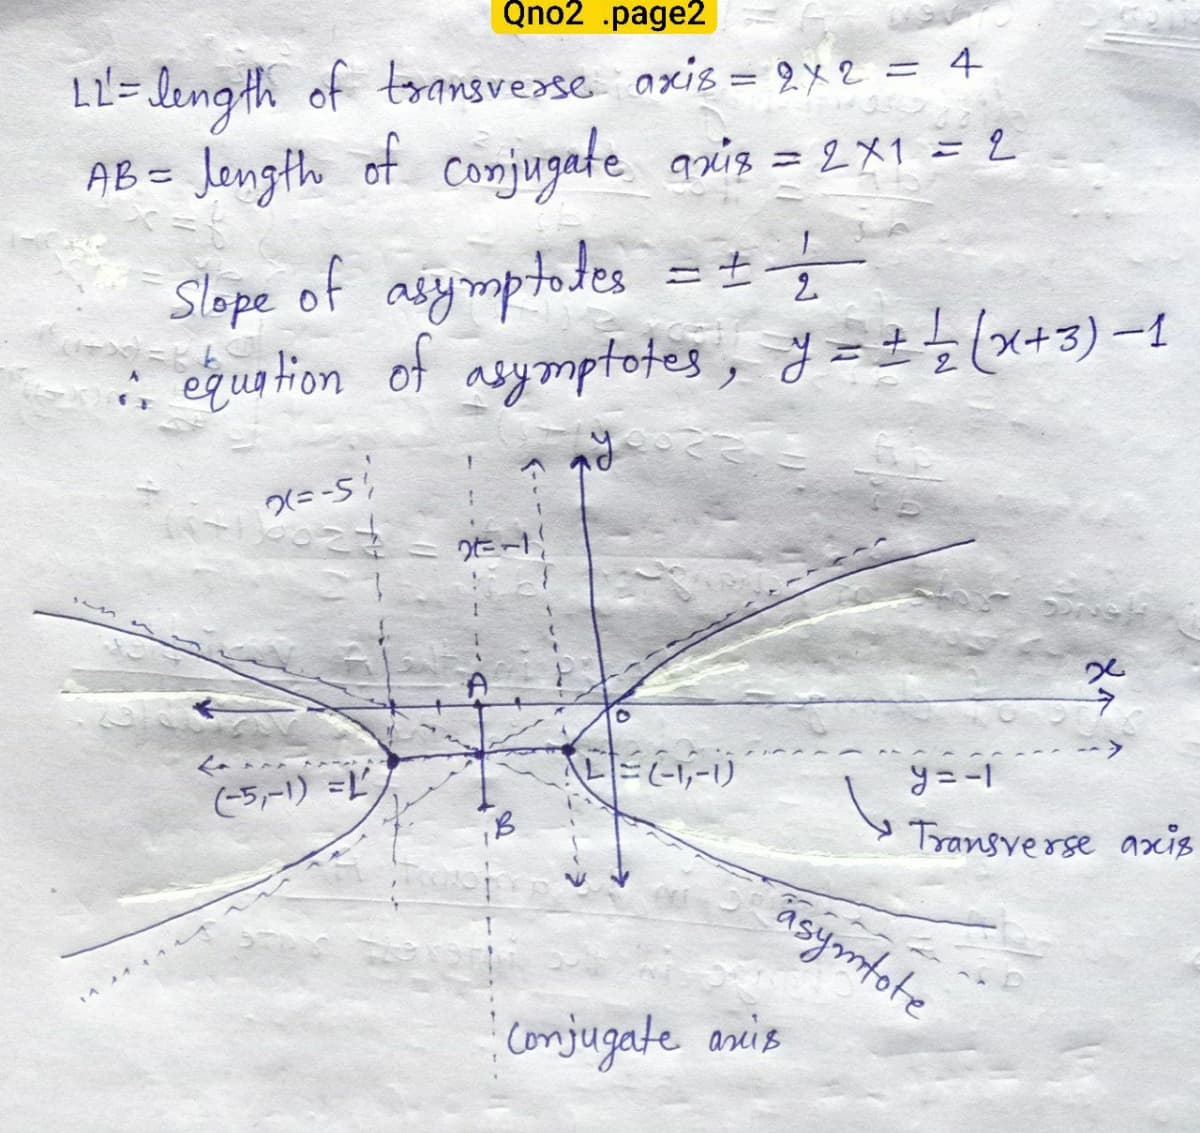 Qno2 .page2
LL'= length of transverse axis = 2×2 = 4
AB = length of conjugate axis = 2×1 = 2
Slope of asymptotes = ± 1/2
∴ equation of asymptotes, y = ± 1/2 (x+3) -1
y
x=-5
x=-1
A
x
O
(-5,-1) =L'
L=(-1,-1)
y=-1
B
Transverse axis
asymtote
conjugate axis